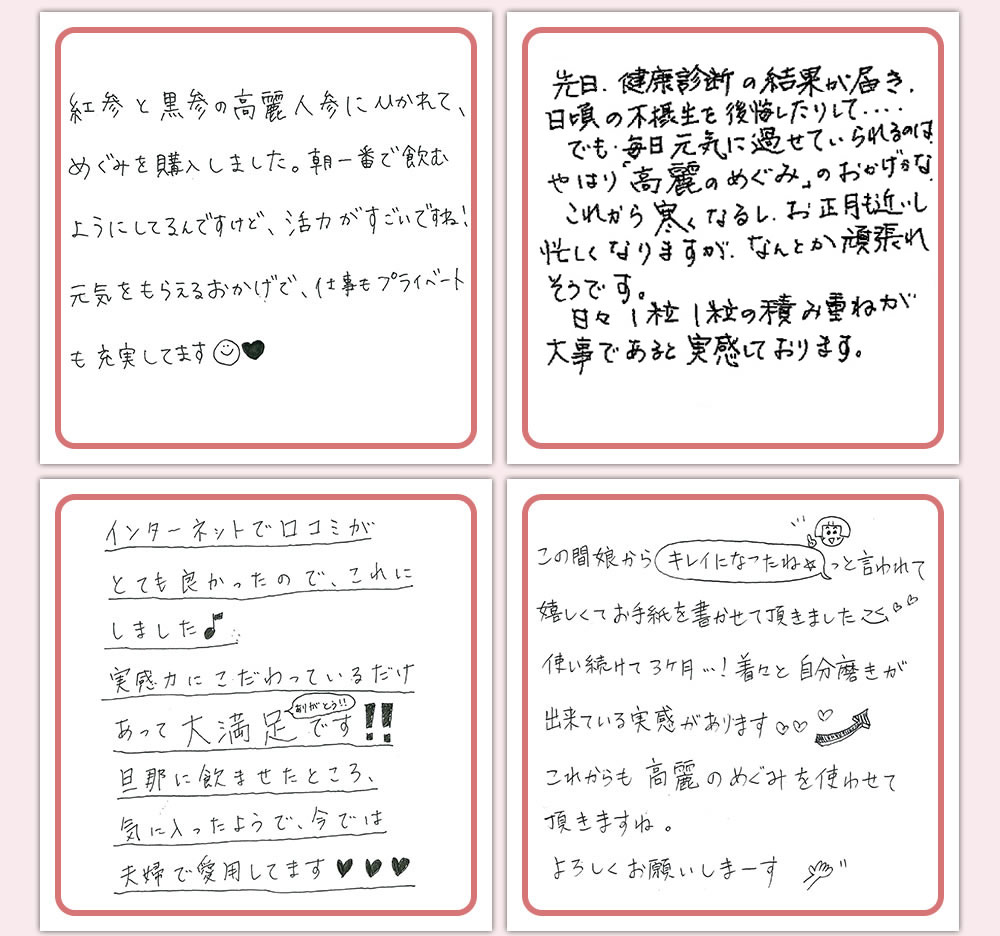 紅参と黒参の高麗人参にひかれて、
めぐみを購入しました。朝一番で飲む
ようにしてるんですけど、活力がすごいですね!
元気をもらえるおかげで、仕事もプライベート
も充実してます
先日、健康診断の結果が届き、
日頃の不摂生を後悔したりして・・・・
でも、毎日元気に過せていられるのは、
やはり「高麗のめぐみ」のおかげかな。
これから寒くなるし、お正月も近いし
忙しくなりますが、なんとか頑張れ
そうです。
日々1粒1粒の積み重ねが
大事であると実感しております。
インターネットで口コミが
とても良かったので、これに
しました♪
実感力にこだわっているだけ
あって大満足です!!
ありがとう!!
旦那に飲ませたところ、
気に入ったようで、今では
夫婦で愛用してます♥♥♥
この間娘からキレイになったね☆っと言われて
嬉しくてお手紙を書かせて頂きました
使い続けて3ケ月…!着々と自分磨きが
出来ている実感があります♡♡
これからも高麗のめぐみを使わせて
頂きますね。
よろしくお願いしまーす